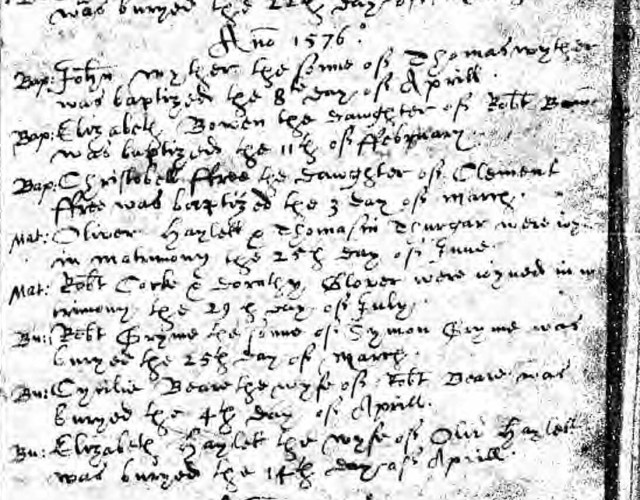 was buryed the 22th day of
Ano 1576.
Bap: John wyther the sonne of Thomas wyther
was baptized the 8th day of Aprill.
Bap: Elizabeth Bowen the daughter of Robt
was baptized the 11th of ffebruary.
Bap: Christobell ffree the daughter of Clement
ffree was baptized the 3 day of march.
Mat: Oliver Haylett & Thomasin Thurgar were
in matrimony the 25th day of June
Mat: Robt Corke & Dorathy Glover were ioyned in
trimony the 29th day of July.
Bu: Robt Gryme the sonne of Symon Gryme was
buryed the 25th day of march.
Bu: Beare the wyfe of Robt Beare was
buryed the 4th day of Aprill.
Bu: Elizabeth Haylet the wyfe of Oliv Haylett
was buryed the 14th day of Aprill.